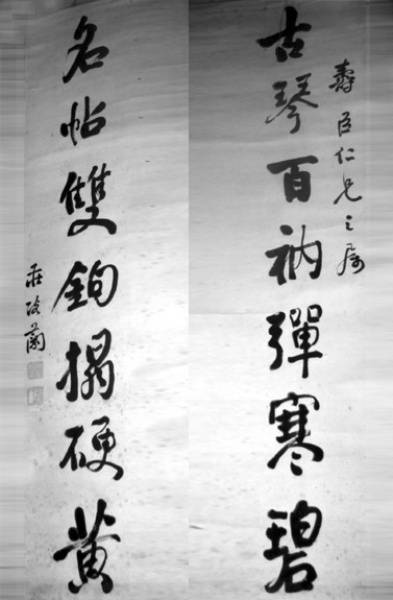 壽臣仁兄之屬
古琴百衲彈寒碧
名帖雙鉤搨硬黃
莊陔蘭